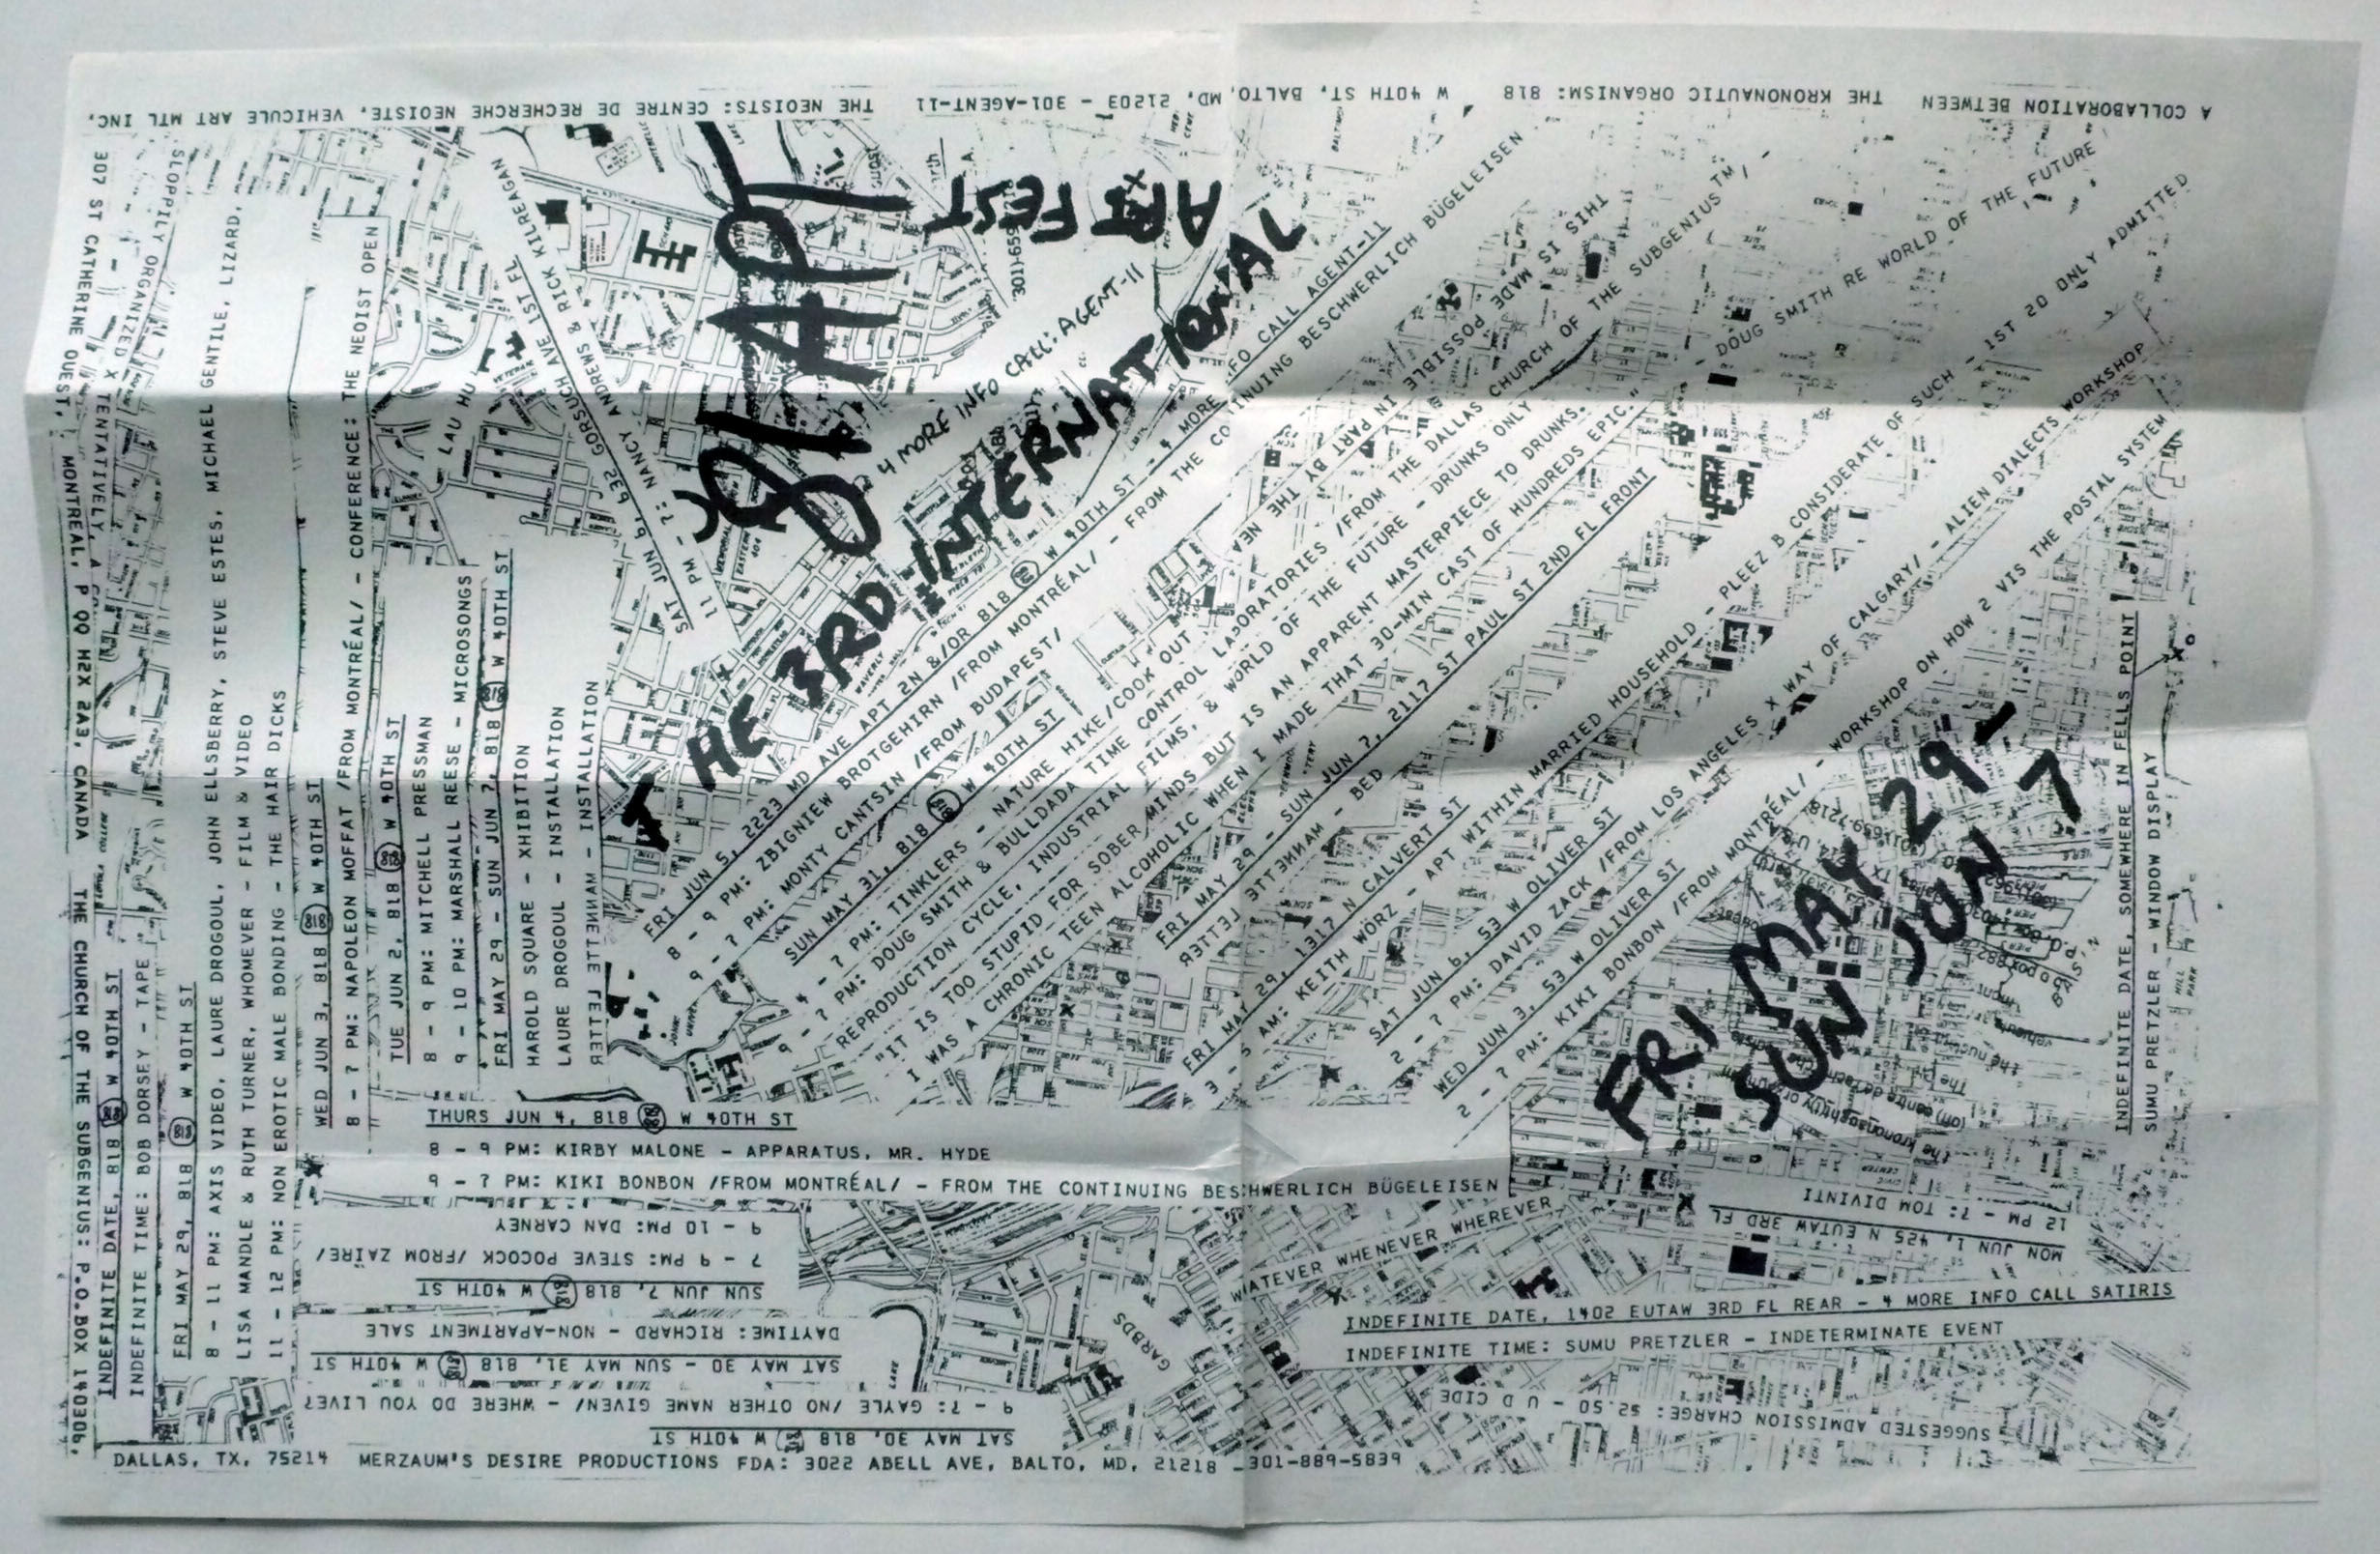 A COLLABORATION BETWEEN THE KRONONAUTIC ORGANISM: 818 W 40TH ST, BALTO, MD, 21203 - 301-AGENT-11 THE NEOISTS: CENTRE DE RECHERCHE NEOISTE, VEHICULE ART MTL INC,
307 ST CATHERINE OUEST, MONTREAL, P QQ H2X 2A3, CANADA THE CHURCH OF THE SUBGENIUS: P.O.BOX 140306,
DALLAS, TX, 75214 MERZAUM'S DESIRE PRODUCTIONS FDA: 3022 ABELL AVE, BALTO, MD, 21218 - 301-889-5839
THE 3RD INTERNATIONAL
APT
ART FEST
4 MORE INFO CALL: AGENT-11
FRI MAY 29 -
SUN JUN 7
SLOPPILY ORGANIZED X TENTATIVELY, A
INDEFINITE DATE, 818 818 W 40TH ST
INDEFINITE TIME: BOB DORSEY - TAPE
FRI MAY 29, 818 818 W 40TH ST
8 - 11 PM: AXIS VIDEO, LAURE DROGOUL, JOHN ELLSBERRY, STEVE ESTES, MICHAEL GENTILE, LIZARD,
LISA MANDLE & RUTH TURNER, WHOMEVER - FILM & VIDEO
11 - 12 PM: NON EROTIC MALE BONDING - THE HAIR DICKS
WED JUN 3, 818 818 W 40TH ST
8 - ? PM: NAPOLEON MOFFAT /FROM MONTRÉAL/ - CONFERENCE: THE NEOIST OPEN
TUE JUN 2, 818 818 W 40TH ST
8 - 9 PM: MITCHELL PRESSMAN
9 - 10 PM: MARSHALL REESE - MICROSONGS
FRI MAY 29 - SUN JUN 7, 818 818 W 40TH ST
HAROLD SQUARE - XHIBITION
LAURE DROGOUL - INSTALLATION
MAИИETTE LETTEЯ - INSTALLATION
LAU HU
SAT JUN 6, 632 GORSUCH AVE 1ST FL
11 PM - ?: NANCY ANDREWS & RICK KILREAGAN
FRI JUN 5, 2223 MD AVE APT 2N &/OR 818 818 W 40TH ST - 4 MORE INFO CALL AGENT-11
8 - 9 PM: ZBIGNIEW BROTGEHIRN /FROM MONTRÉAL/ - FROM THE CONTINUING BESCHWERLICH BÜGELEISEN
9 - ? PM: MONTY CANTSIN /FROM BUDAPEST/
SUN MAY 31, 818 818 W 40TH ST
4 - ? PM: TINKLERS - NATURE HIKE/COOK OUT
9 - ? PM: DOUG SMITH & BULLDADA TIME CONTROL LABORATORIES /FROM THE DALLAS CHURCH OF THE SUBGENIUS TM/
REPRODUCTION CYCLE, INDUSTRIAL FILMS, & WORLD OF THE FUTURE - DRUNKS ONLY
"IT IS TOO STUPID FOR SOBER MINDS BUT IS AN APPARENT MASTERPIECE TO DRUNKS.
I WAS A CHRONIC TEEN ALCOHOLIC WHEN I MADE THAT 30-MIN CAST OF HUNDREDS EPIC."
- DOUG SMITH RE WORLD OF THE FUTURE
THIS IS MADE POSSIBLE IN PART BY THE NEA
FRI MAY 29 - SUN JUN 7, 2117 ST PAUL ST 2ND FL FRONT
MAИИETTE LETTEЯ - BED
FRI MAY 29, 1317 N CALVERT ST
3 - 5 AM: KEITH WÖRZ - APT WITHIN MARRIED HOUSEHOLD - PLEEZ B CONSIDERATE OF SUCH - 1ST 20 ONLY ADMITTED
SAT JUN 6, 53 W OLIVER ST
2 - ? PM: DAVID ZACK /FROM LOS ANGELES X WAY OF CALGARY/ - ALIEN DIALECTS WORKSHOP
WED JUN 3, 53 W OLIVER ST
2 - ? PM: KIKI BONBON /FROM MONTRÉAL/ - WORKSHOP ON HOW 2 VIS THE POSTAL SYSTEM
INDEFINITE DATE, SOMEWHERE IN FELLS POINT
SUMU PRETZLER - WINDOW DISPLAY
THURS JUN 4, 818 818 W 40TH ST
8 - 9 PM: KIRBY MALONE - APPARATUS, MR. HYDE
9 - ? PM: KIKI BONBON /FROM MONTRÉAL/ - FROM THE CONTINUING BESCHWERLICH BÜGELEISEN
SUN JUN 7, 818 818 W 40TH ST
7 - 9 PM: STEVE POCOCK /FROM ZAÏRE/
9 - 10 PM: DAN CARNEY
SAT MAY 30 - SUN MAY 31, 818 818 W 40TH ST
DAYTIME: RICHARD - NON-APARTMENT SALE
SAT MAY 30, 818 818 W 40TH ST
9 - ?: GAYLE /NO OTHER NAME GIVEN/ - WHERE DO YOU LIVE?
GARBDS
WHATEVER WHENEVER WHEREVER
MON JUN 1, 425 N EUTAW 3RD FL
12 PM - ?: TOM DIVINTI
INDEFINITE DATE, 1402 EUTAW 3RD FL REAR - 4 MORE INFO CALL SATIRIS
INDEFINITE TIME: SUMU PRETZLER - INDETERMINATE EVENT
SUGGESTED ADMISSION CHARGE: $2.50 - U D CIDE